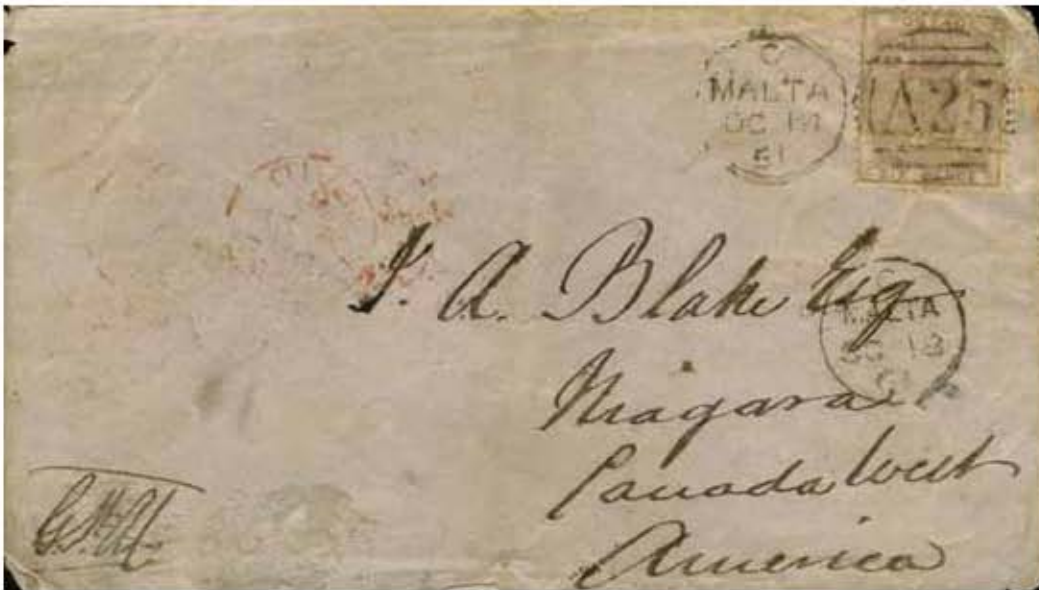 C
MALTA
OC 18
61
A25
J. A. Blake Esq
C
MALTA
OC 18
61
Niagara
Canada West
America